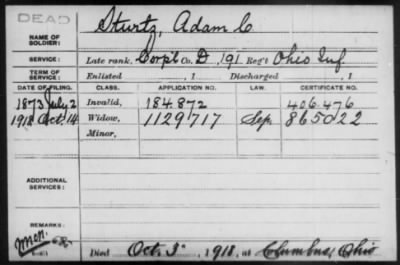 DEAD
NAME OF SOLDIER: Sturtz, Adam C
SERVICE: Late rank, Corp'l Co. D, 191 Reg't Ohio Inf.
TERM OF SERVICE: Enlisted , 1 Discharged , 1
DATE OF FILING. CLASS. APPLICATION NO. LAW. CERTIFICATE NO.
1873 July 2 Invalid, 184.872 406.476
1918 Oct. 14 Widow, 1129717 Sep. 865022
Minor,
ADDITIONAL SERVICES:
REMARKS:
Died Oct. 3, 1918, at Columbus, Ohio